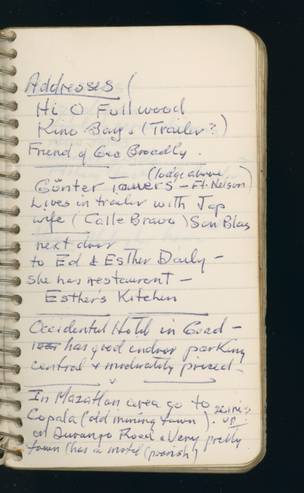 Addresses (
Hi O Fullwood
Kino Bay, (Trailer?)
Friend of Geo Broadly.
(lodge above
Günter Towers – Ft. Nelson)
Lives in trailer with Jap
wife (Calle Bravo) San Blas
next door
to Ed & Esther Daily –
she has restaurant –
Esther's Kitchen
Occidental Hotel in Guad –
has good indoor parking
central & moderately priced –
In Mazatlan area go to
Copala (old mining town). up
on Durango Road & Very pretty
town (has a motel